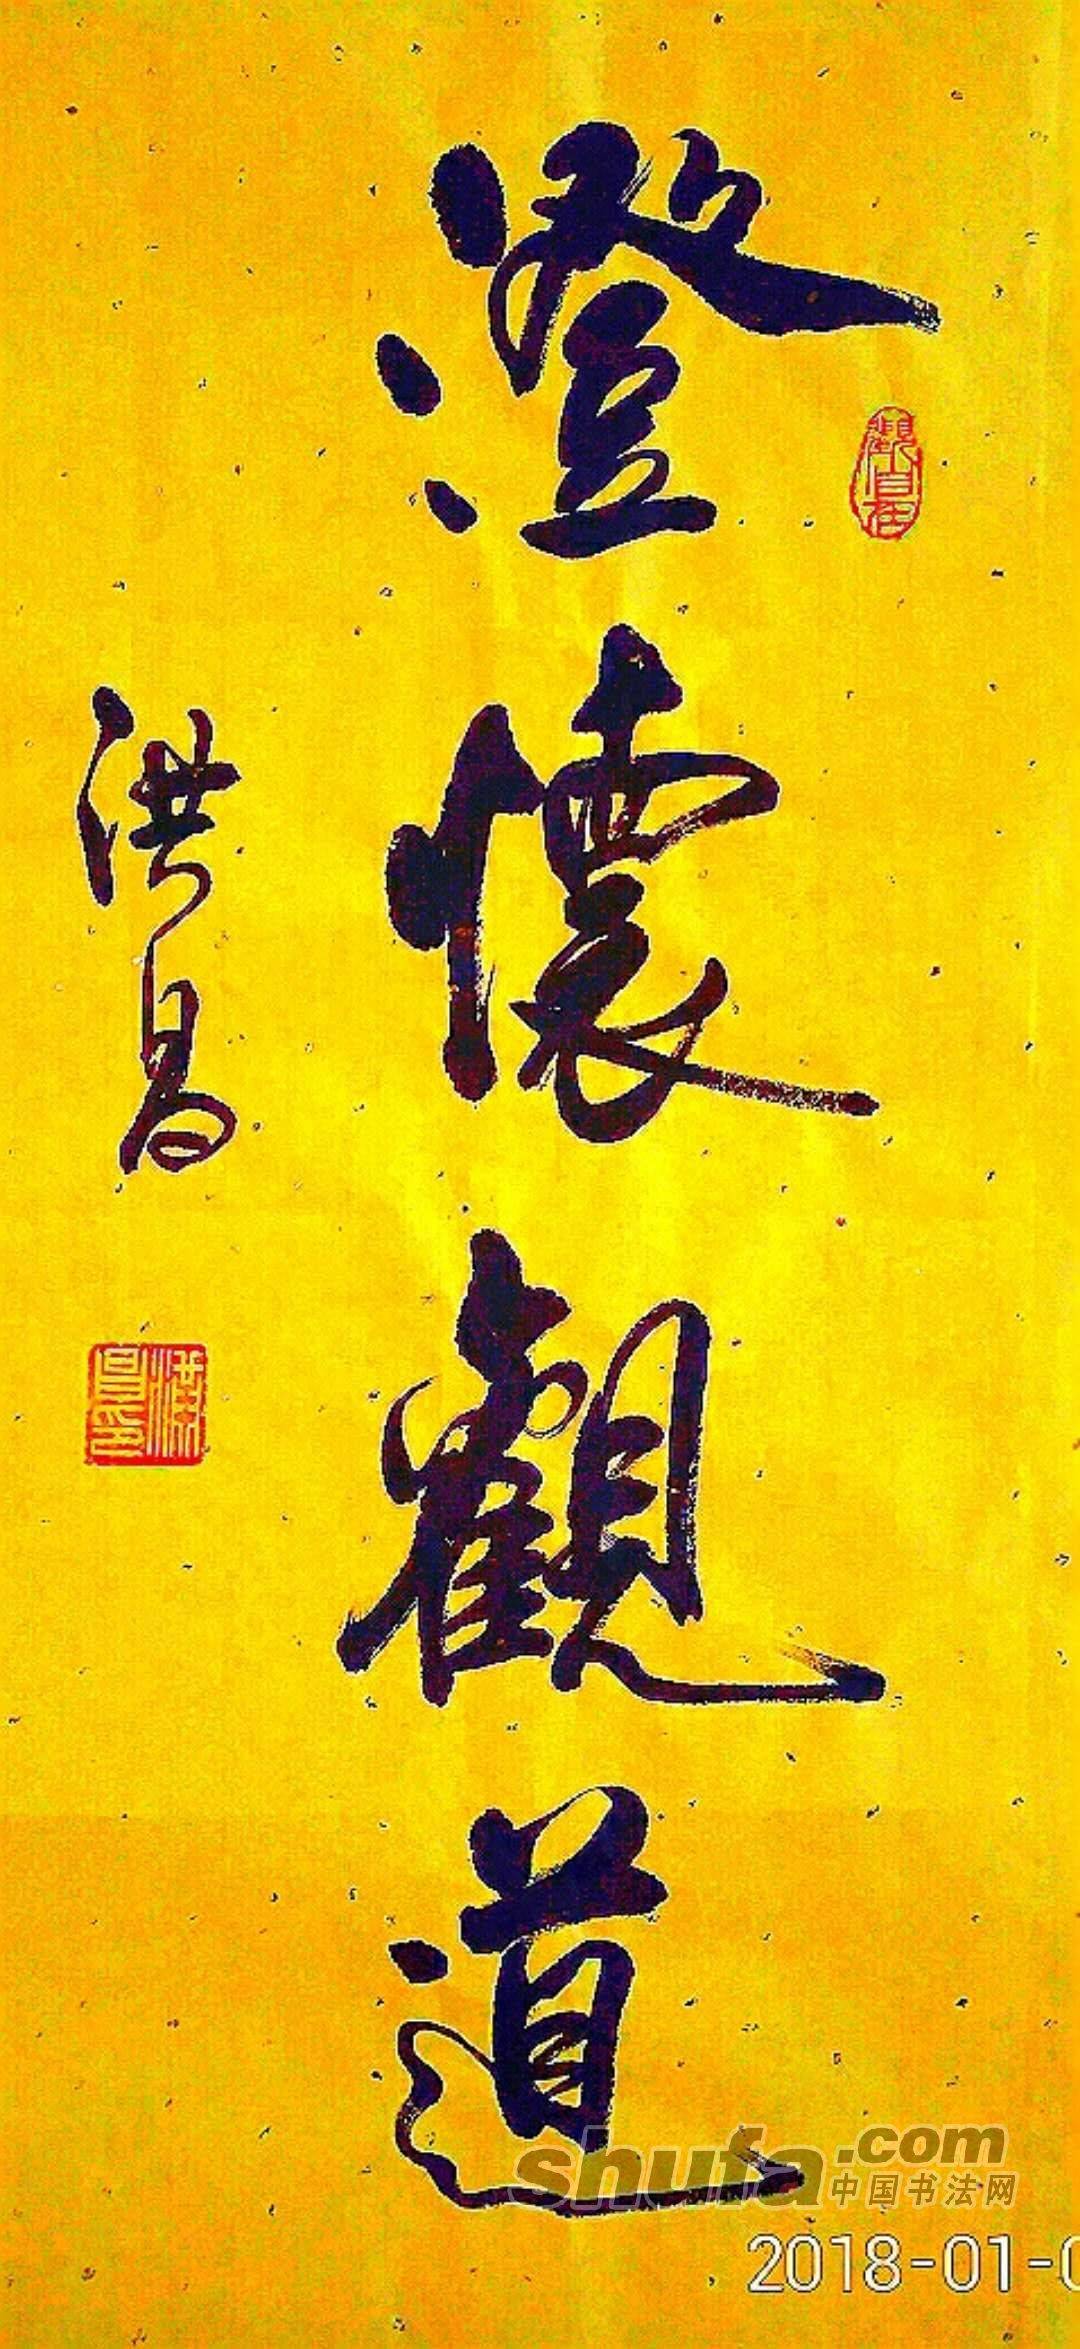 澄懷觀道
觀自在
洪昌
洪昌印
shufa.com
中国书法网
2018-01-0